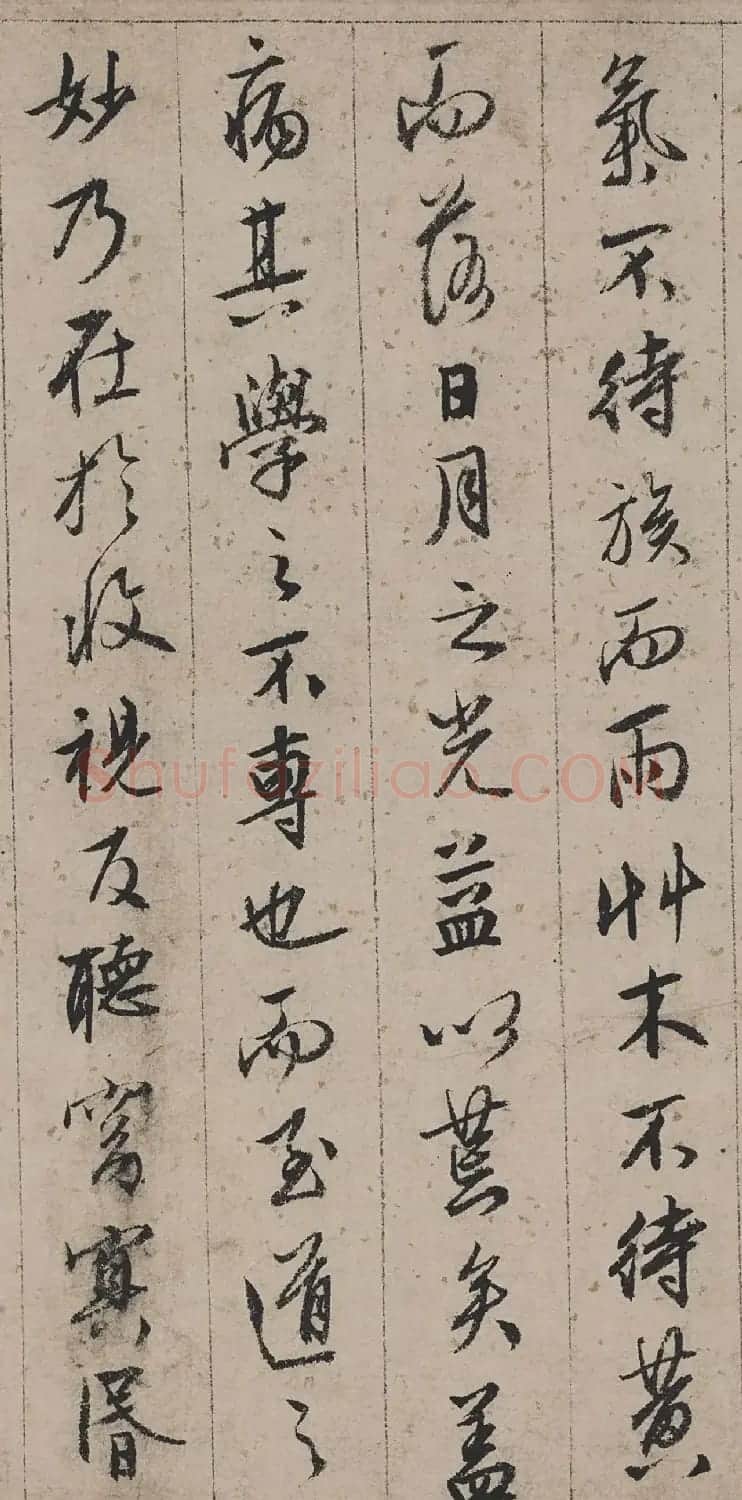 氣不待族而雨艸木不待黄
而落日月之光益以荒矣盖
病其學之不專也而至道之
妙乃在於收視反聽窈冥昬
Shufaziliao.COM